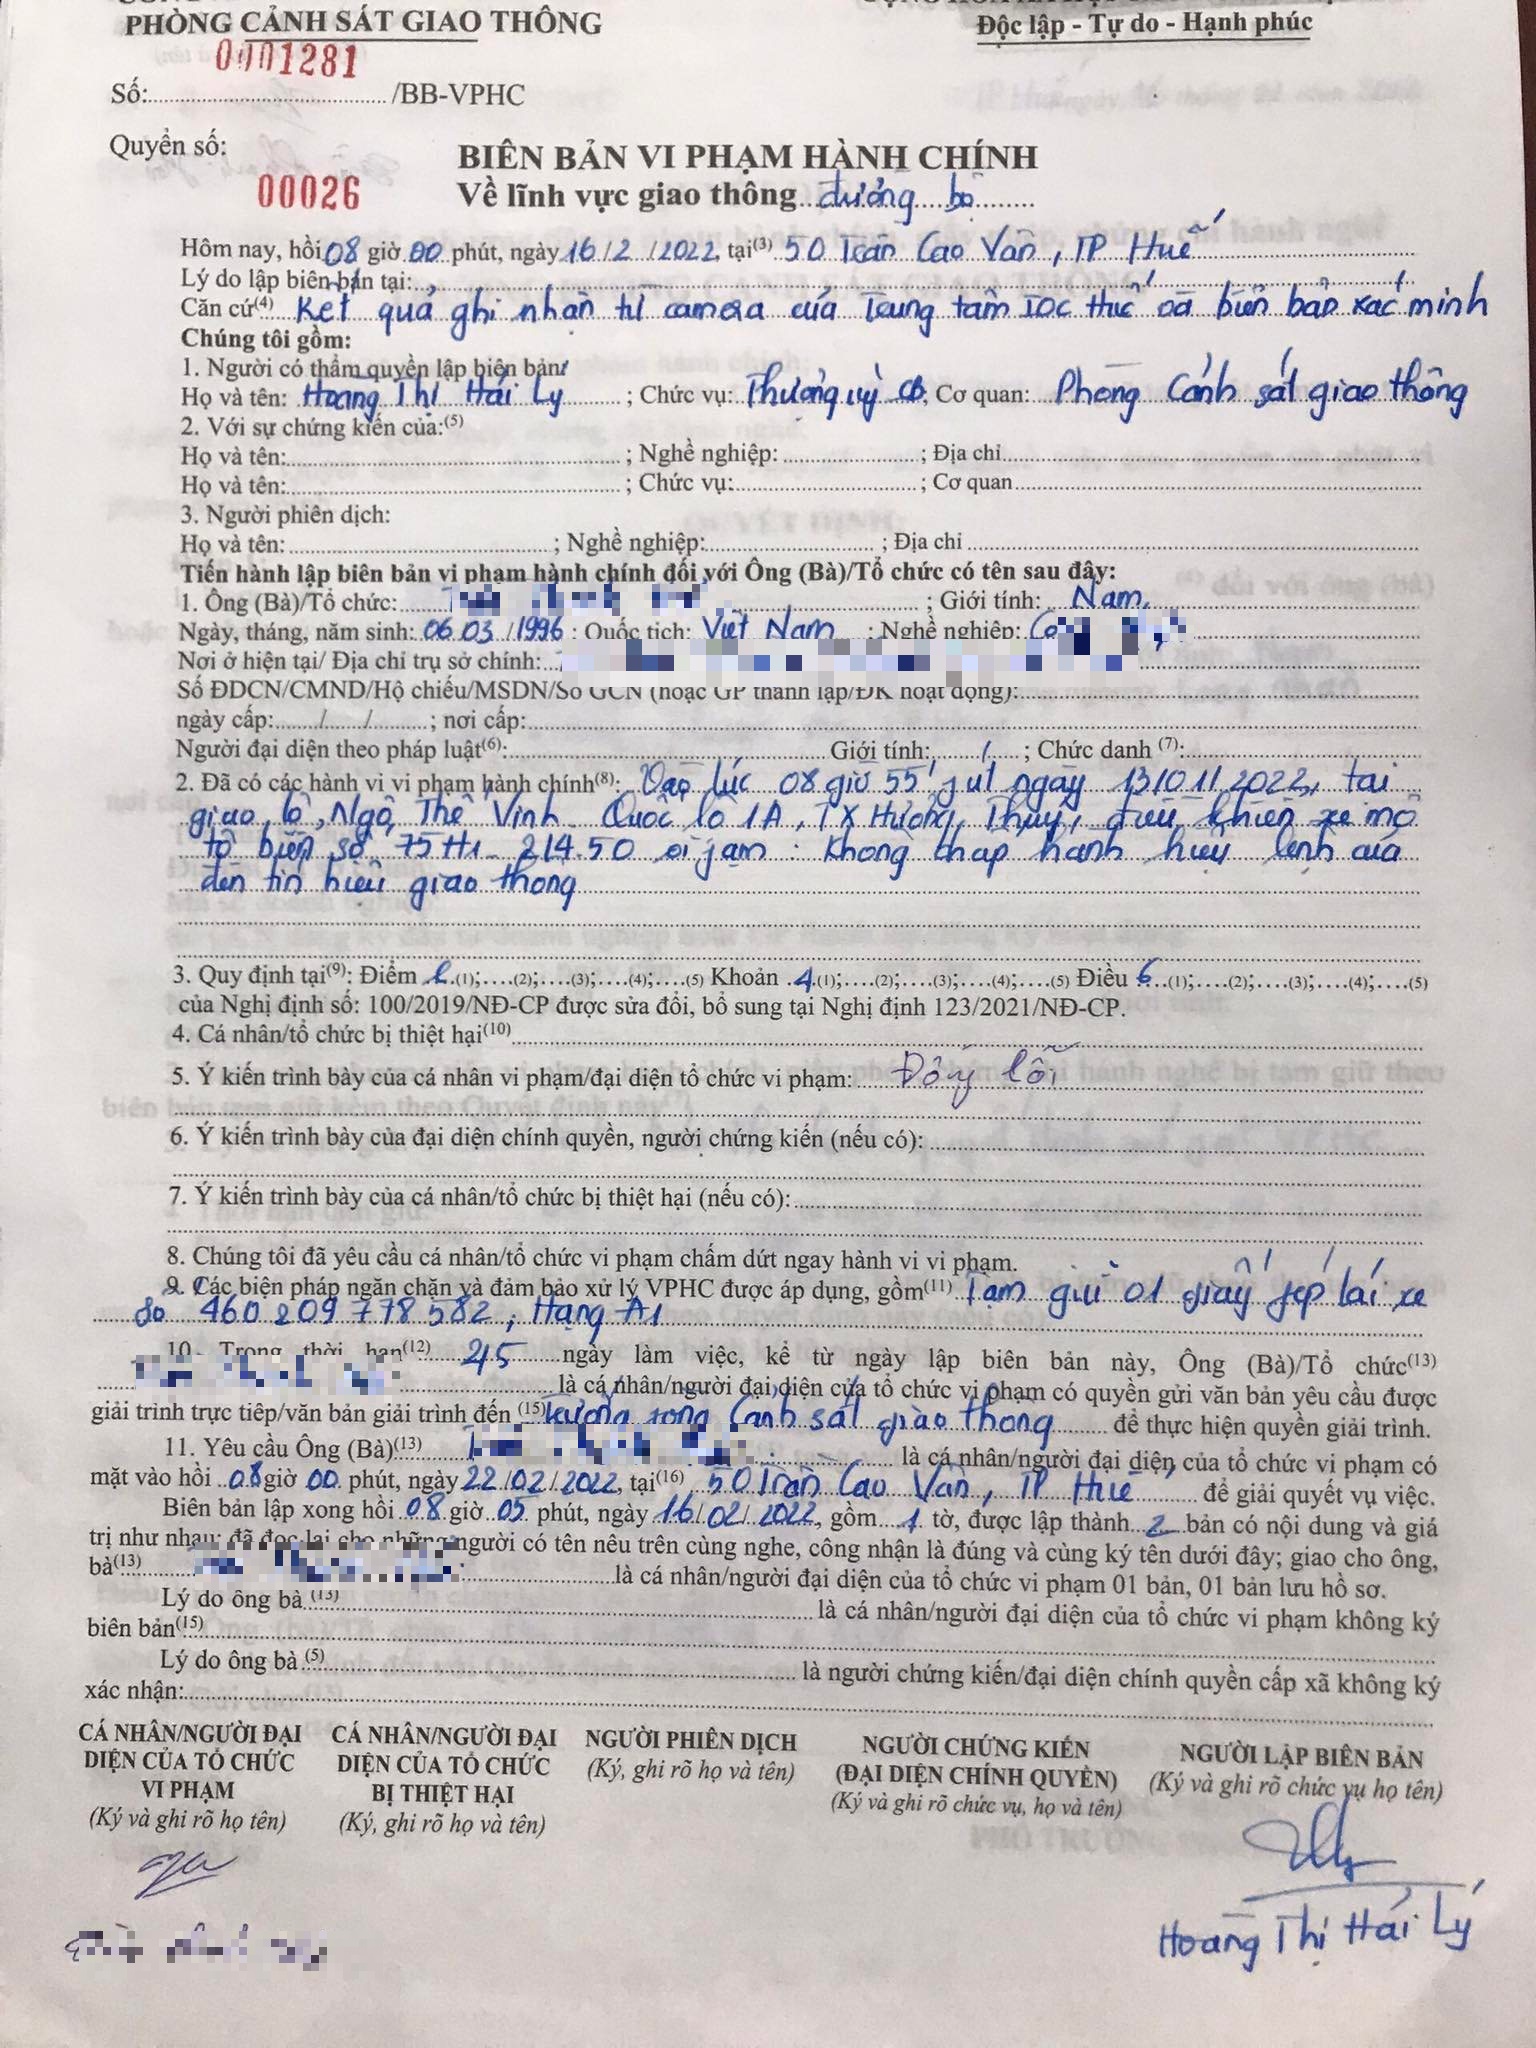 PHÒNG CẢNH SÁT GIAO THÔNG
Độc lập - Tự do - Hạnh phúc
0001281
Số:................/BB-VPHC
Quyển số:
00026
BIÊN BẢN VI PHẠM HÀNH CHÍNH
Về lĩnh vực giao thông đường bộ
Hôm nay, hồi 08 giờ 00 phút, ngày 16/2/2022, tại(3) 50 Trần Cao Vân, TP Huế
Lý do lập biên bản tại:
Căn cứ(4) Kết quả ghi nhận từ camera của Trung tâm IOC Huế và biên bản xác minh
Chúng tôi gồm:
1. Người có thẩm quyền lập biên bản:
Họ và tên: Hoàng Thị Hải Lý ; Chức vụ: Thượng úy CB, Cơ quan: Phòng Cảnh sát giao thông
2. Với sự chứng kiến của:(5)
Họ và tên: ; Nghề nghiệp: ; Địa chỉ
Họ và tên: ; Chức vụ: ; Cơ quan
3. Người phiên dịch:
Họ và tên: ; Nghề nghiệp: ; Địa chỉ
Tiến hành lập biên bản vi phạm hành chính đối với Ông (Bà)/Tổ chức có tên sau đây:
1. Ông (Bà)/Tổ chức: ; Giới tính: Nam
Ngày, tháng, năm sinh: 06/03/1996 ; Quốc tịch: Việt Nam ; Nghề nghiệp:
Nơi ở hiện tại/ Địa chỉ trụ sở chính:
Số ĐDCN/CMND/Hộ chiếu/MSDN/Số GCN (hoặc GP thành lập/ĐK hoạt động):
ngày cấp: / / ; nơi cấp:
Người đại diện theo pháp luật(6): Giới tính: / ; Chức danh (7):
2. Đã có các hành vi vi phạm hành chính(8): Vào lúc 08 giờ 55' ngày 13/01/2022, tại
giao lộ Ngô Thế Vinh - Quốc lộ 1A, TX Hương Thủy, điều khiển xe mô
tô biển số 75H1 - 214.50 vi phạm: Không chấp hành hiệu lệnh của
đèn tín hiệu giao thông
3. Quy định tại(9): Điểm e.(1);….(2);….(3);….(4);….(5) Khoản 4.(1);….(2);….(3);….(4);….(5) Điều 6.(1);….(2);….(3);….(4);….(5)
của Nghị định số: 100/2019/NĐ-CP được sửa đổi, bổ sung tại Nghị định 123/2021/NĐ-CP.
4. Cá nhân/tổ chức bị thiệt hại(10)
5. Ý kiến trình bày của cá nhân vi phạm/đại diện tổ chức vi phạm: Đồng ý lỗi
6. Ý kiến trình bày của đại diện chính quyền, người chứng kiến (nếu có):
7. Ý kiến trình bày của cá nhân/tổ chức bị thiệt hại (nếu có):
8. Chúng tôi đã yêu cầu cá nhân/tổ chức vi phạm chấm dứt ngay hành vi vi phạm.
9. Các biện pháp ngăn chặn và đảm bảo xử lý VPHC được áp dụng, gồm(11) Tạm giữ 01 giấy phép lái xe
Số 460209778582, Hạng A1
10. Trong thời hạn(12) ngày làm việc, kể từ ngày lập biên bản này, Ông (Bà)/Tổ chức(13)
là cá nhân/người đại diện của tổ chức vi phạm có quyền gửi văn bản yêu cầu được
giải trình trực tiếp/văn bản giải trình đến (15) Trưởng phòng Cảnh sát giao thông để thực hiện quyền giải trình.
11. Yêu cầu Ông (Bà)(13) là cá nhân/người đại diện của tổ chức vi phạm có
mặt vào hồi 08 giờ 00 phút, ngày 22/02/2022, tại(16) 50 Trần Cao Vân, TP Huế để giải quyết vụ việc.
Biên bản lập xong hồi 08 giờ 05 phút, ngày 16/02/2022, gồm 1 tờ, được lập thành 2 bản có nội dung và giá
trị như nhau; đã đọc lại cho những người có tên nêu trên cùng nghe, công nhận là đúng và cùng ký tên dưới đây; giao cho ông,
bà(13) là cá nhân/người đại diện của tổ chức vi phạm 01 bản, 01 bản lưu hồ sơ.
Lý do ông bà (13) là cá nhân/người đại diện của tổ chức vi phạm không ký
biên bản(15)
Lý do ông bà (5) là người chứng kiến/đại diện chính quyền cấp xã không ký
xác nhận:
CÁ NHÂN/NGƯỜI ĐẠI DIỆN CỦA TỔ CHỨC VI PHẠM
(Ký và ghi rõ họ tên)
CÁ NHÂN/NGƯỜI ĐẠI DIỆN CỦA TỔ CHỨC BỊ THIỆT HẠI
(Ký, ghi rõ họ và tên)
NGƯỜI PHIÊN DỊCH
(Ký, ghi rõ họ và tên)
NGƯỜI CHỨNG KIẾN (ĐẠI DIỆN CHÍNH QUYỀN)
(Ký và ghi rõ chức vụ, họ và tên)
NGƯỜI LẬP BIÊN BẢN
(Ký và ghi rõ chức vụ họ tên)
Hoàng Thị Hải Lý